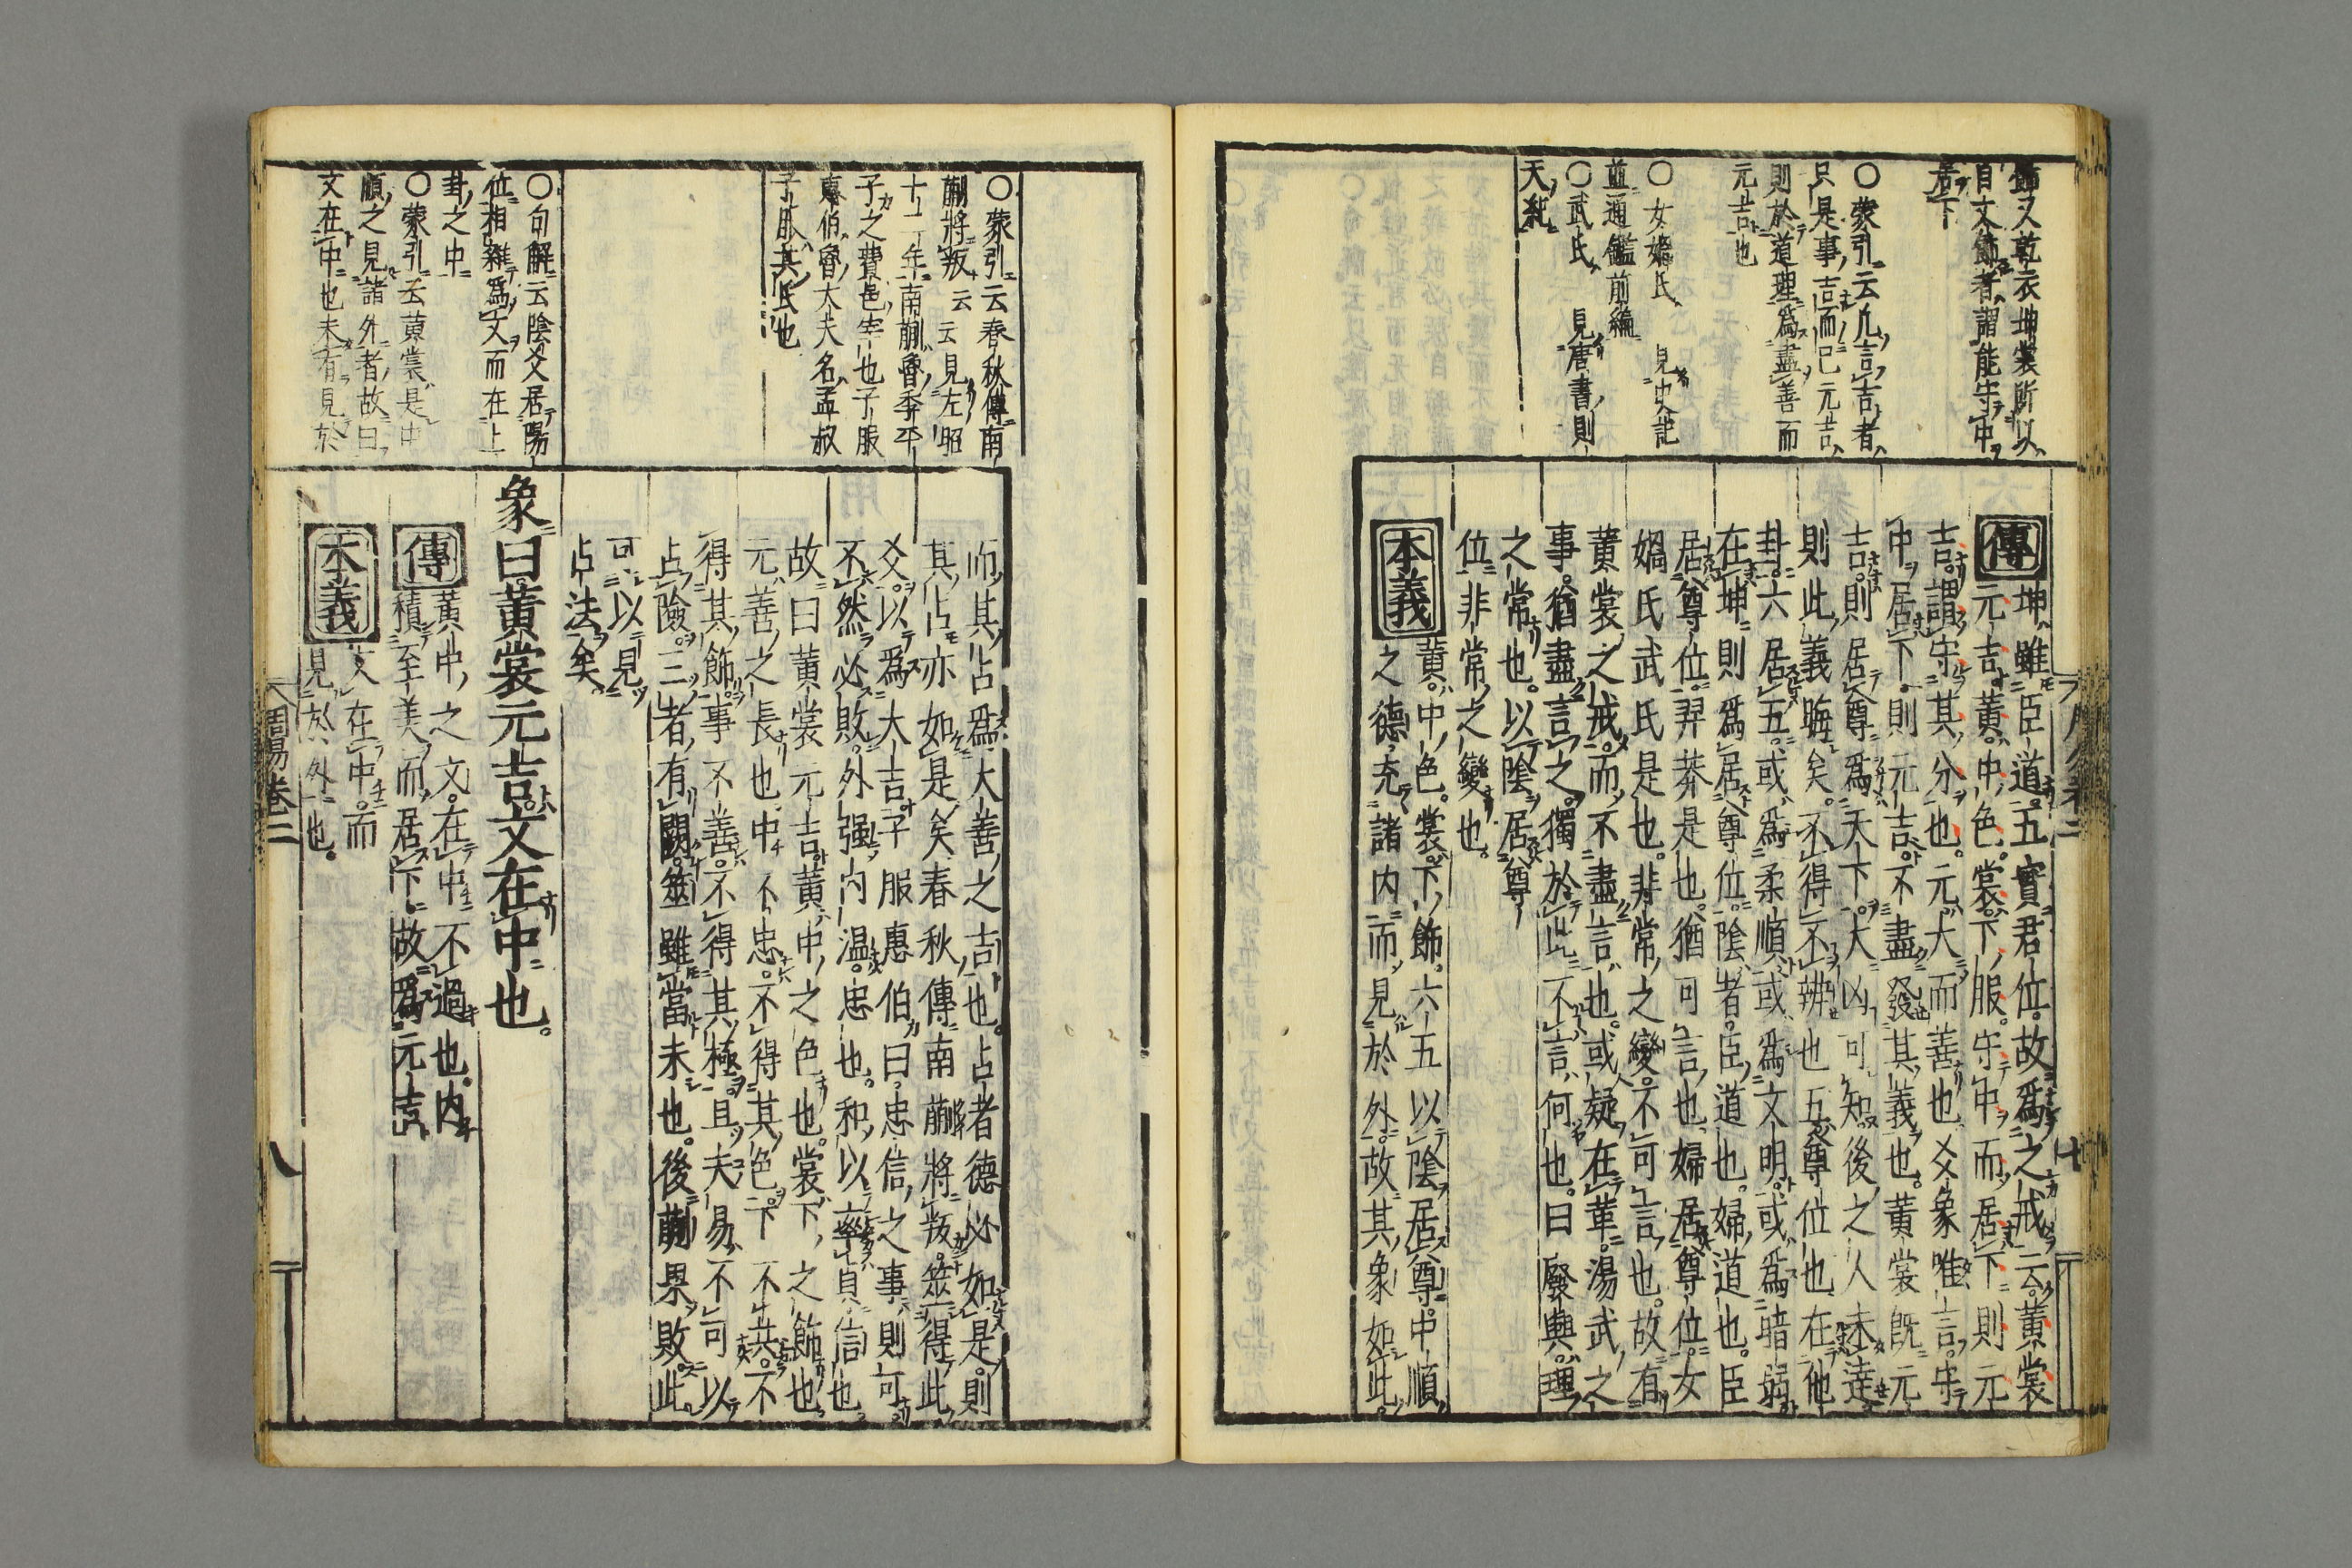 飾又乾衣坤裳所以
自文飾者謂能守中
居下
○蒙引云凡言吉者
只是事吉而已元吉
則於道理爲盡善而
元吉也
○女媧氏 見史記
並通鑑前編
○武氏 見唐書則
天紀
傳 坤雖臣道。五實君位。故爲之戒云。黃裳
元吉。黃。中色。裳。下服。守中而居下。則元
吉。謂守其分也。元。大而善也。爻象唯言。守
中居下。則元吉。不盡發其義也。黃裳既元
吉。則居尊爲天下。大凶可知。後之人未達
則此義晦矣。不得不辨也五尊位也在他
卦。六居五。或爲柔順。或爲文明。或爲暗弱。
在坤則爲居尊位。陰者。臣道也。婦道也。臣
居尊位。羿莽是也。猶可言也。婦居尊位。女
媧氏武氏是也。非常之變。不可言也。故有
黃裳之戒。而不盡言也。或疑在革。湯武之
事。猶盡言之。獨於此不言。何也。曰廢興。理
之常也。以陰居尊
位非常之變也。
本義 黃。中色。裳。下飾。六五以陰居尊。中順
之德充諸內。而見於外。故其象如此。
周易卷二
七
○蒙引云春秋傳南
蒯將叛云云見左昭
十二年南蒯魯季平
子之費邑宰也子服
惠伯魯大夫名孟叔
子服其氏也
○句解云陰爻居陽
位相雜爲文而在上
卦之中
○蒙引云黃裳是中
順之見諸外者故曰
文在中也未有見於
而其占爲大善之吉也。占者德必如是。則
其占亦如是矣春秋傳南蒯將叛。筮得此
爻。以爲大吉子服惠伯曰。忠信之事則可
不然必敗。外强內温。忠也。和以率貞信也。
故曰黃裳元吉。黃。中之色也。裳。下之飾也。
元。善之長也。中不忠。不得其色。下不共。不
得其飾。事不善。不得其極。且夫易不可以
占險。三者有闕。筮雖當未也。後蒯果敗此。
可以見
占法矣
象曰黃裳元吉文在中也。
傳 黃中之文。在中不過也。內
積至美而居下。故爲元吉
本義 文在中。而
見於外也。
周易卷二
八